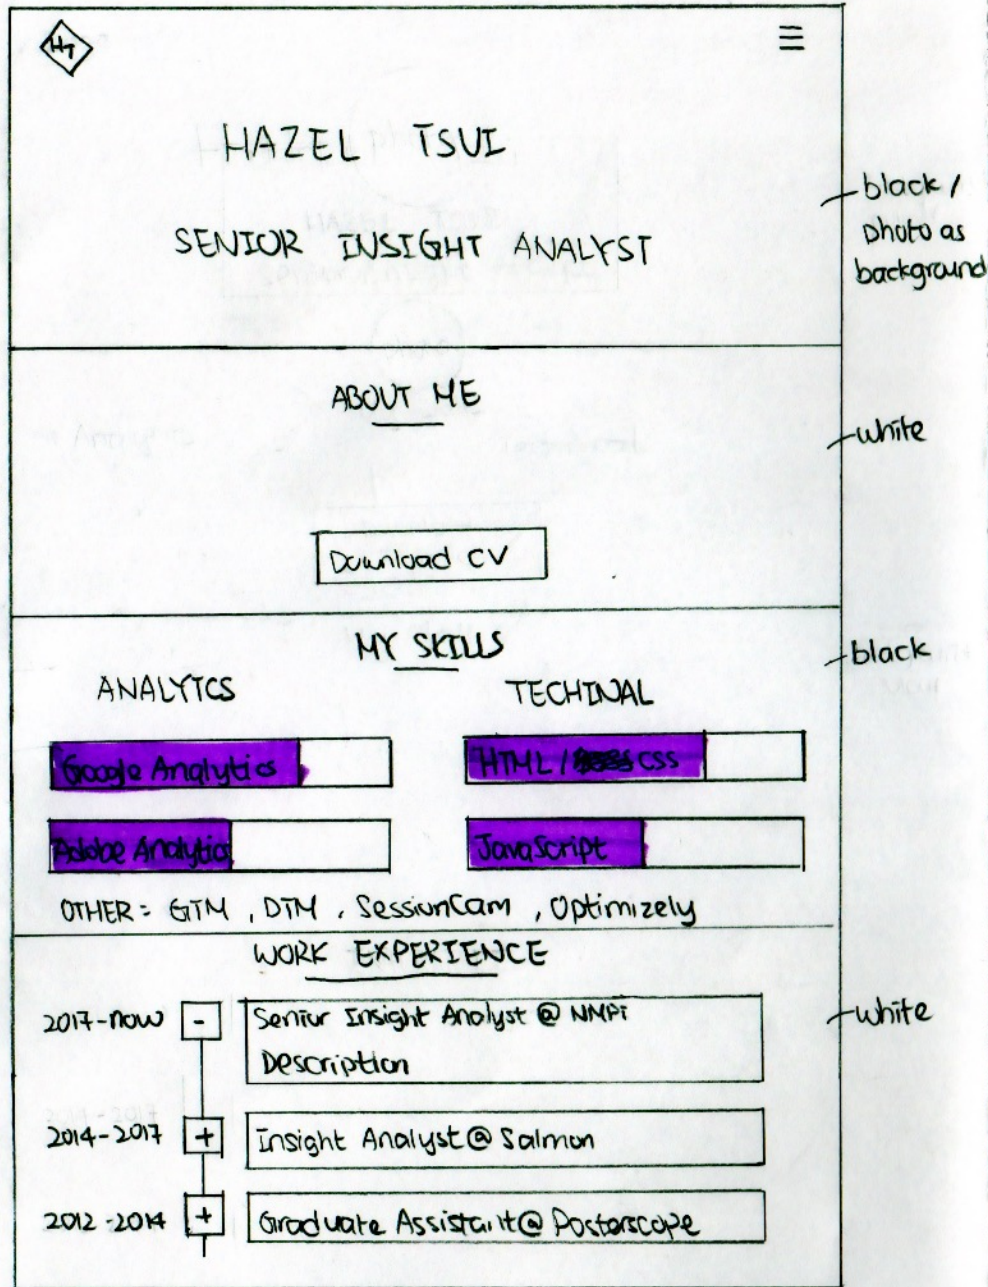 HT
HAZEL TSUI
SENIOR INSIGHT ANALYST
black /
photo as
background
ABOUT ME
white
Download CV
MY SKILLS
black
ANALYTCS TECHINAL
Google Analytics HTML / CSS
Adobe Analytics JavaScript
OTHER = GTM , DTM , SessionCam , Optimizely
WORK EXPERIENCE
2017-now - Senior Insight Analyst @ NMPi
white
Description
2014-2017 + Insight Analyst @ Salmon
2012-2014 + Graduate Assistant @ Posterscope